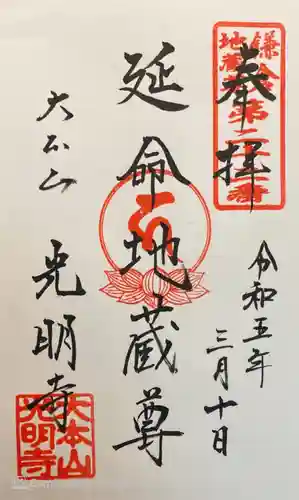 奉拝
鎌倉
地蔵尊第二十二番
令和五年
三月十日
延命地蔵尊
大本山
光明寺
大本山
光明寺